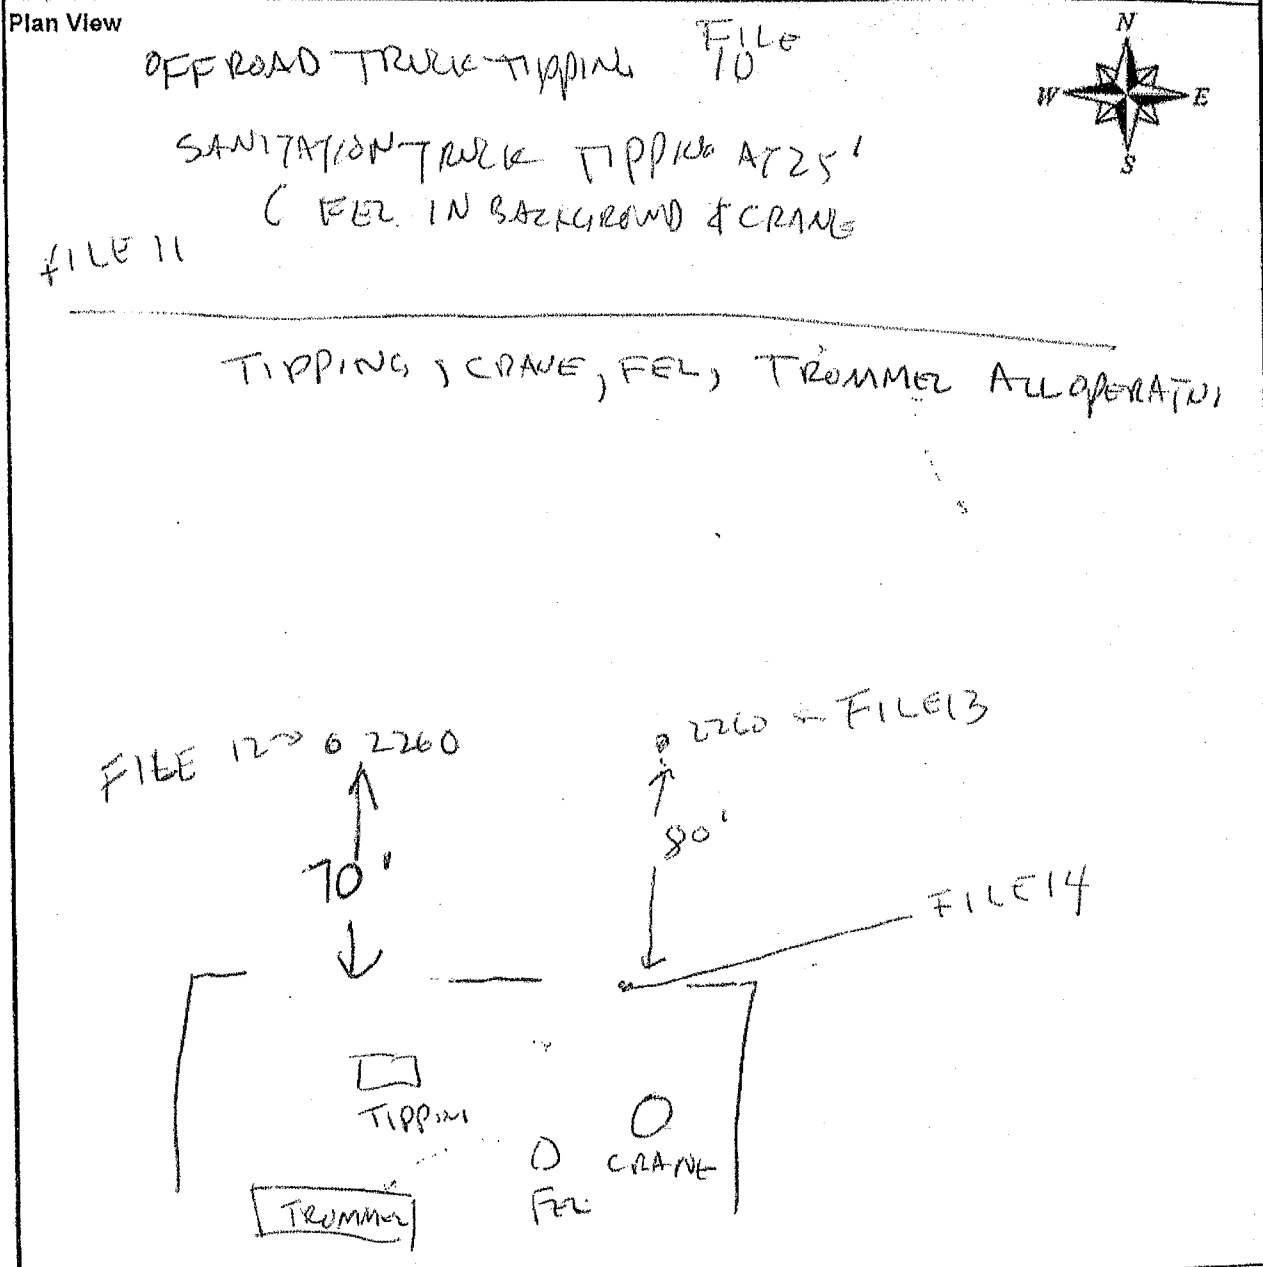 Plan View
N
W E
S
OFFROAD TRUCK TIPPING FILE 10
SANITATION TRUCK TIPPING AT 25'
( FEL IN BACKGROUND & CRANE
FILE 11
TIPPING, CRANE, FEL, TROMMEL ALL OPERATNI
FILE 12 → 2260
2260 ← FILE 13
70'
80'
FILE 14
TIPPINI
CRANE
FEL
TROMMEL